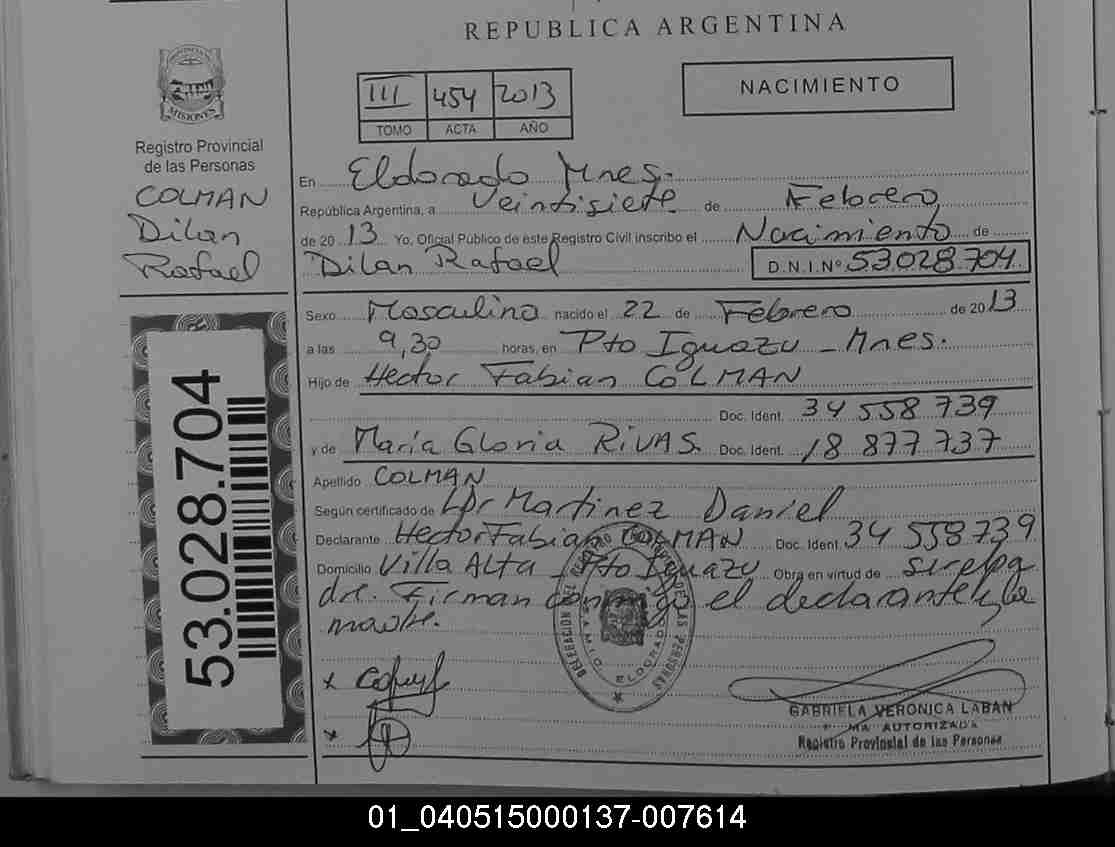 REPUBLICA ARGENTINA
PROVINCIA
MISIONES
III 454 2013
TOMO ACTA AÑO
NACIMIENTO
Registro Provincial
de las Personas
COLMAN
Dilan
Rafael
En Eldorado Mnes.
República Argentina, a Veintisiete de Febrero
de 2013 Yo, Oficial Público de este Registro Civil inscribo el Nacimiento de
Dilan Rafael D.N.I.Nº 53.028.704
Sexo Masculino nacido el 22 de Febrero de 2013
a las 9,30 horas, en Pto Iguazu - Mnes.
Hijo de Hector Fabian COLMAN
Doc. Ident. 34 558 739
y de Maria Gloria RIVAS. Doc. Ident. 18 877 737
Apellido COLMAN
Según certificado de Martinez Daniel
Declarante Hector Fabian COLMAN Doc. Ident. 34 558 739
Domicilio Villa ALTA - Pto Iguazu Obra en virtud de
Firman conmigo el declarante y la
madre.
53.028.704
DELEGACION DEL REGISTRO DE LAS PERSONAS
ELDORADO
GABRIELA VERONICA LABAN
FIRMA AUTORIZADA
Registro Provincial de las Personas
01_040515000137-007614